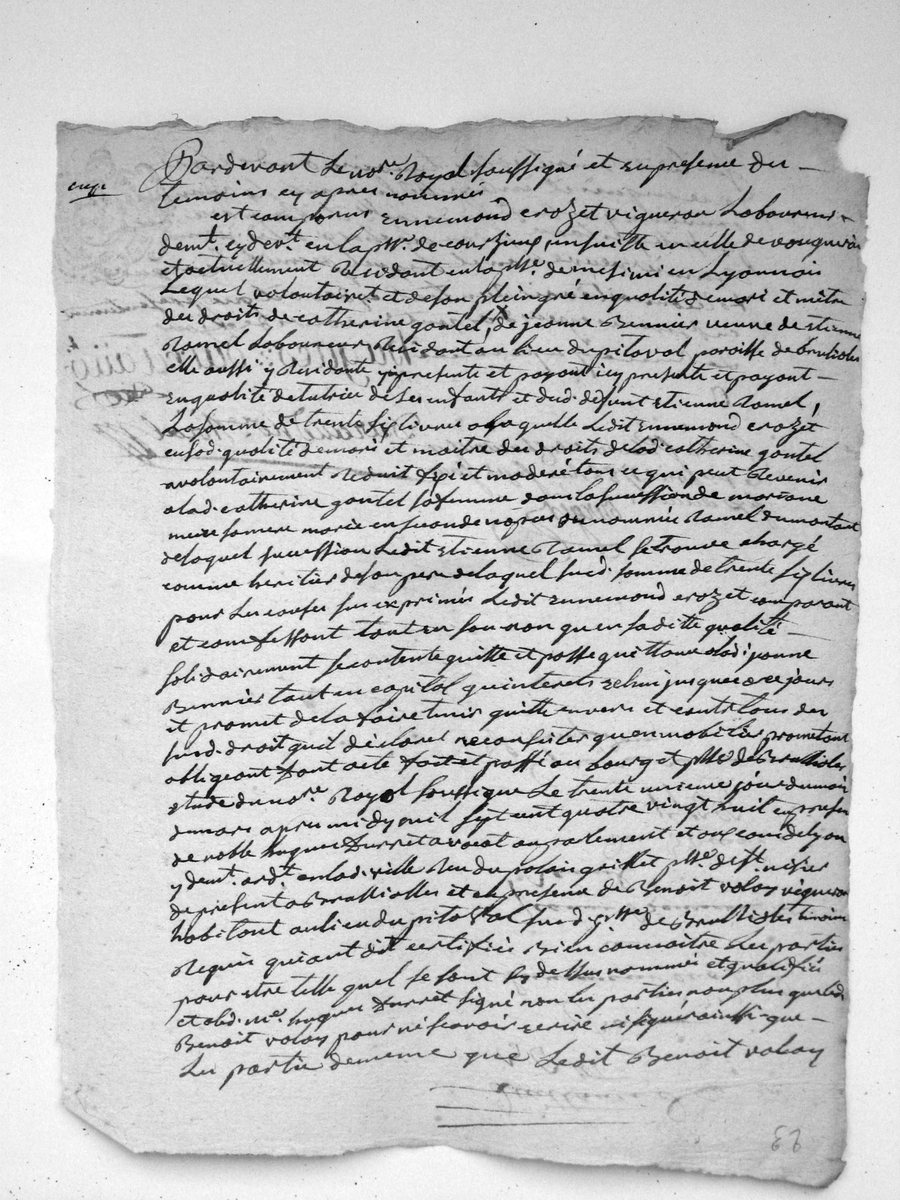 Pardevant le no.re Royal soussigné et en presence des
temoins cy apres nommés
exp.
est comparus ennemond crozet vigneron laboureur
dem.t cy dev.t en la p.sse de courzieu
et actuellement Residant en la p.sse de messimi en Lyonnois
Lequel volontairem.t et de son plein gré en qualité de mari et mêtre
des droits de catherine gontel, de jeanne Bennier veuve de etienne
Ramel Laboureur Residant au lieu du pitaval paroisse de brulioles
elle aussi y Residante y presente et payant icy presente et payant
en qualité de tutrice de ses enfants et dud. defunt Etienne Ramel,
La somme de trente six livres a laquelle Ledit Ennemond crozet
en sad. qualité de mari et maitre des droits de lad. catherine gontel
a volontairement Reduit fixé et moderé tout ce qui peut Revenir
a lad. catherine gontel sa femme dans la succession de mariane
sa mere mariée en seconde nopces au nommée Ramel du montant
de laquel succession Ledit Etienne Ramel se trouve chargé
comme heritier de son pere de laquel susd. somme de trente six livres
pour les causes sus exprimés Ledit Ennemond crozet comparant
et confessant tant en son nom qu'en sa ditte qualité
solidairement se contente quitte et passe quittance a lad. jeanne
Bennier tant en capital qu'interets echus jusques a ce jours
et promet de la faire tenir quitte envers et contre tous des
susd. droit qu'il declarel ne consister qu'en mobilier promettant
obligeant dont acte fait et passé au bourg et p.sse de Brullioles
etude du no.re Royal soussigné Le trente unieme jour du mois
de mars apres midy mil sept cent quatre vingt huit en presence
de noble hugues Durret avocat au parlement et aux cours de lyon
y dem.t ord.t en la d. ville Rue du palais grillet p.sse de s.t nisier
de present a Brullioles et en presence de Benoit valoy vigneron
habitant au lieu du pitaval susd. p.sse de Brullioles temoins
Requis qui ont dit certifiés Bien connoitre les parties
pour etre telle quel se sont cy dessus nommés et qualifiés
et a led. m.e hugues Durret signé non les parties non plus que led.
Benoit valoy pour ne scavoir ecrire ni signer ainsi que
Les partie de meme que Ledit Benoit valoy
63